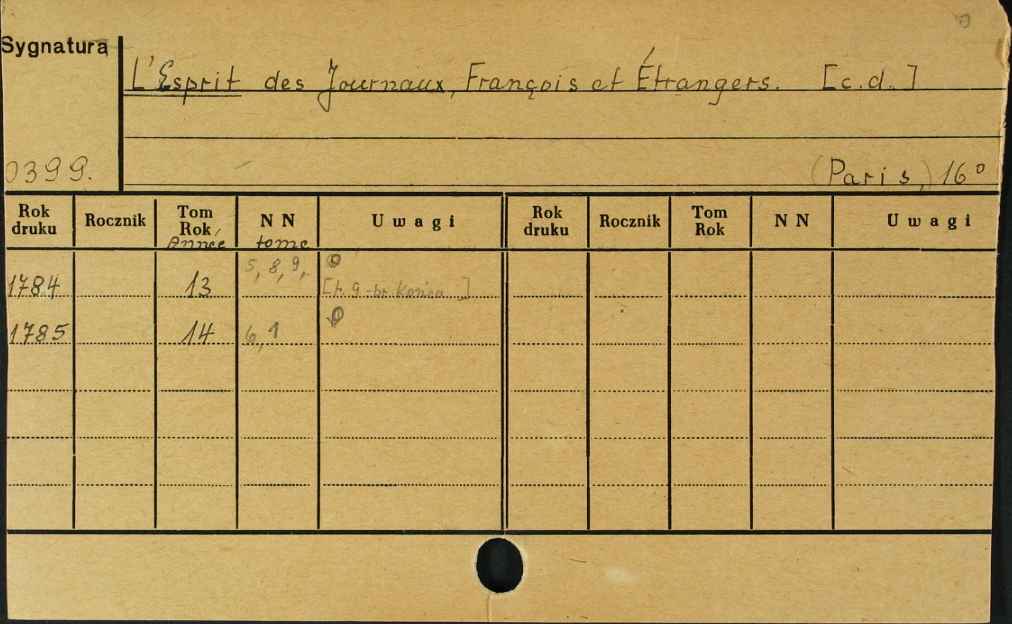 Sygnatura
L'Esprit des Journaux, François et Étrangers. [c.d.]
0399. (Paris,) 16°
Rok druku Rocznik Tom Rok Année N N tome Uwagi Rok druku Rocznik Tom Rok N N Uwagi
1784 13 5, 8, 9, [t. 9 - br. końca]
1785 14 6,